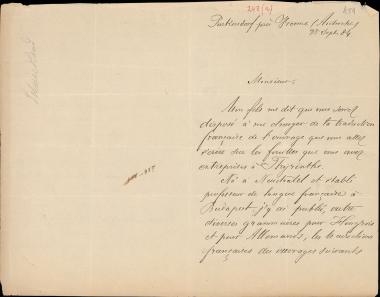 248 (a)
Purkersdorf près Vienne (Autriche)
25 Sept. 84
Monsieur,
Mon fils me dit que vous seriez
disposé à me charger de la traduction
française de l'ouvrage que vous allez
écrire sur les fouilles que vous avez
entreprises à Thyrinthe.
Né à Neuchâtel et établi
professeur de langue française à
Budapest j'y ai publié, outre
diverses grammaires pour Hongrois
et pour Allemands, les traductions
françaises des ouvrages suivants